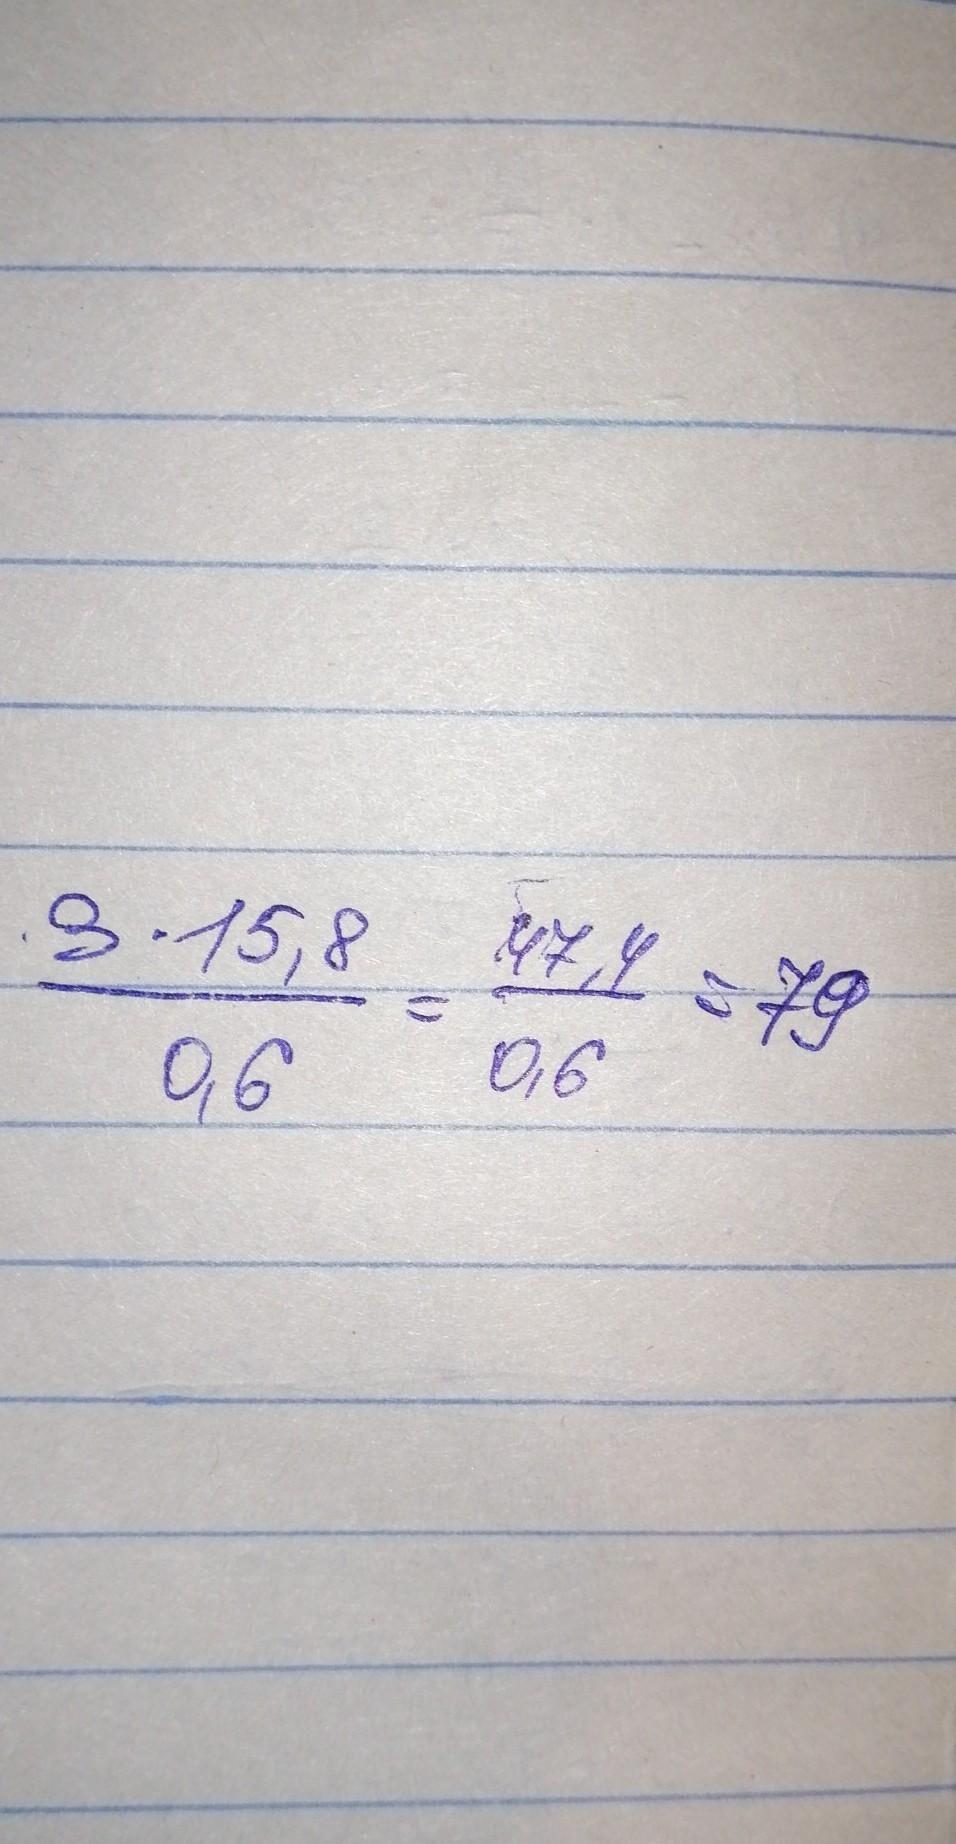 3·15,8/0,6 = 47,4/0,6 = 79